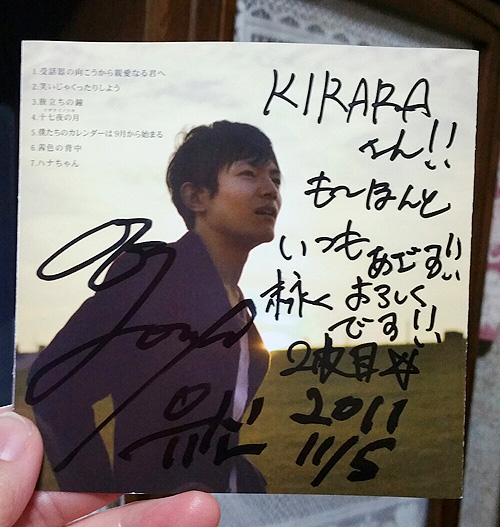 1.受話器の向こうから親愛なる君へ
2.笑いじゃくったりしよう
3.旅立ちの鐘
4.十七夜の月
5.僕たちのカレンダーは9月から始まる
6.茜色の背中
7.ハナちゃん
KIRARA
さん!!
も〜ほんと
いつも あざす!!
末永く よろしく
です!!
2枚目☆
2011
11/5